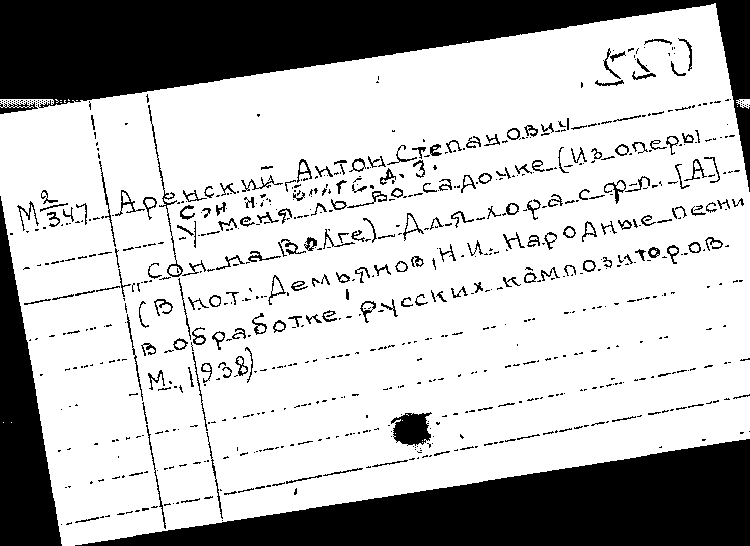 550
М 2/347 Аренский, Антон Степанович
Сон на Волге. д. 3.
У меня ль во садочке (Из оперы
"Сон на Волге) Для хора с ф-п. [А]
(В нот.: Демьянов, Н.И. Народные песни
в обработке русских композиторов
М., 1938)